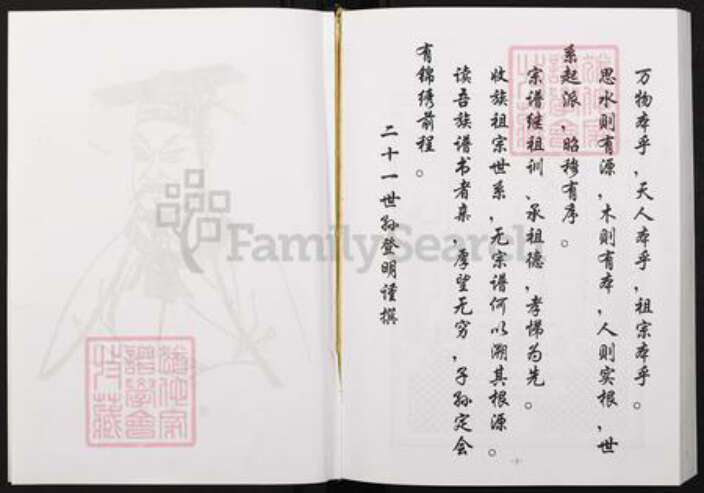 万物本乎，天人本乎，祖宗本乎。
思水则有源，木则有本，人则实根，世
系起派，昭穆有序。
宗谱继祖训、承祖德，孝悌为先。
收族祖宗世系，无宗谱何以溯其根源。
读吾族谱书者亲，厚望无穷，子孙定会
有锦绣前程。
二十一世孙登明谨撰
FamilySearch
谱学会
收藏